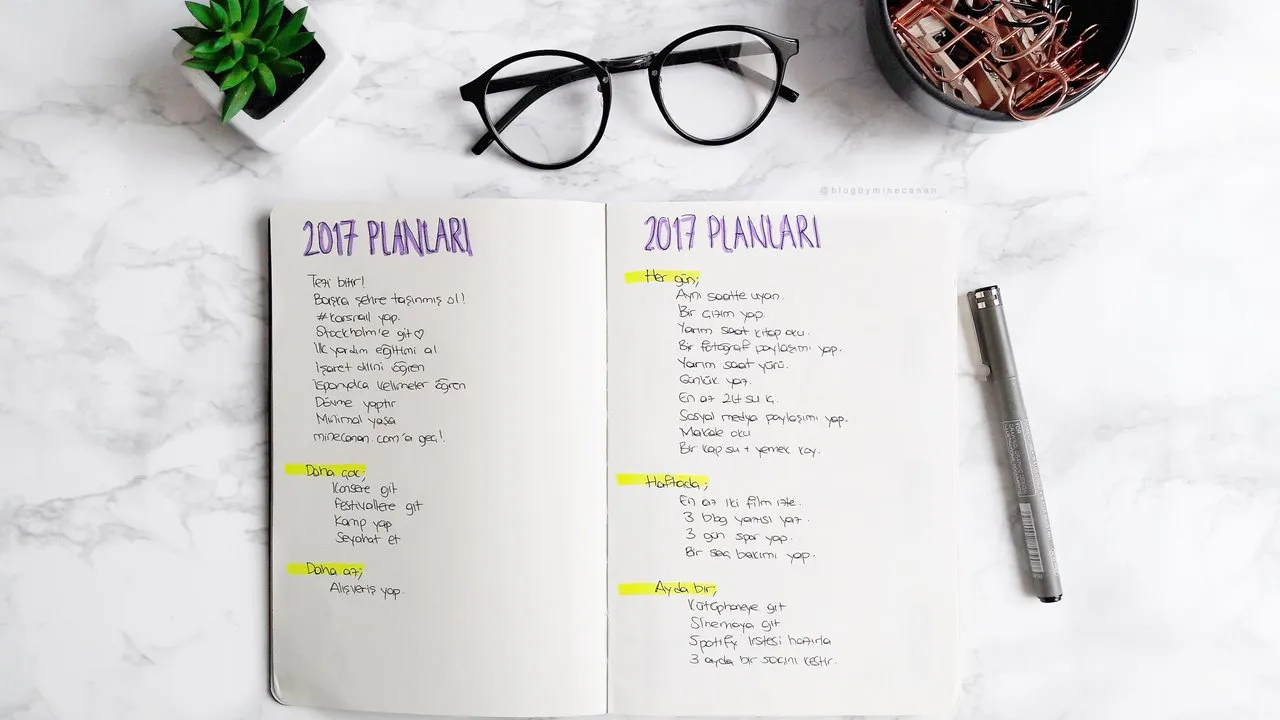 @blogbyminecanan
2017 PLANLARI
Tezi bitir!
Başka şehre taşınmış ol!
#karsnail yap.
Stockholm'e git♡
İlk yardım eğitimi al
İşaret dilini öğren
İspanyolca kelimeler öğren
Dövme yaptır
Minimal yaşa
minecanan.com'a geç!
Daha çok;
Konsere git
Festivallere git
Kamp yap
Seyahat et
Daha az;
Alışveriş yap.
2017 PLANLARI
Her gün;
Aynı saatte uyan.
Bir çizim yap.
Yarım saat kitap oku.
Bir fotoğraf paylaşımı yap.
Yarım saat yürü.
Günlük yaz.
En az 2lt su iç.
Sosyal medya paylaşımı yap.
Makale oku
Bir kap su + yemek koy.
Haftada;
En az iki film izle.
3 blog yazısı yaz.
3 gün spor yap.
Bir saç bakımı yap.
Ayda bir;
Kütüphaneye git
Sinemaya git
Spotify listesi hazırla
3 ayda bir saçını kestir.